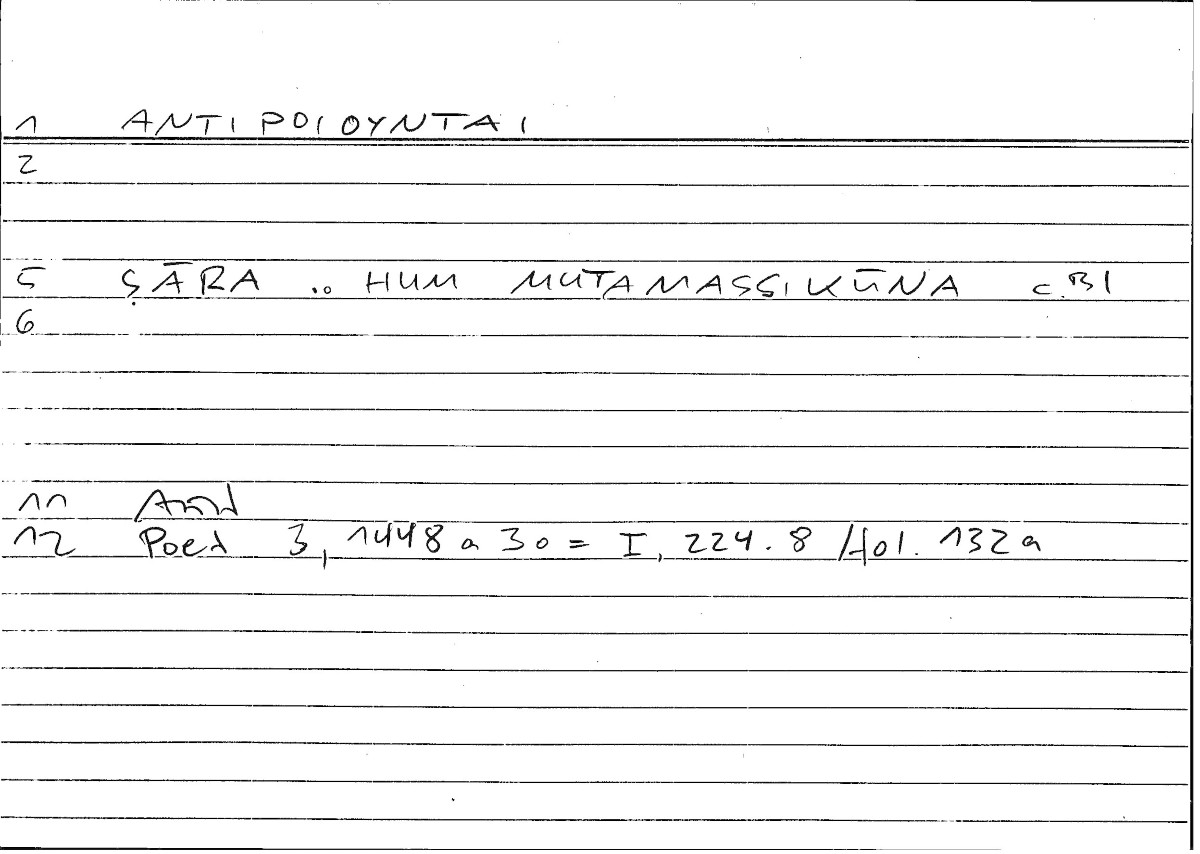 1 ANTIPOIOYNTAI
2
5 ṢĀRA .. HUM MUTAMASSIKŪNA c. BI
6
11 Arist
12 Poet 3, 1448 a 30 = I, 224.8 / fol. 132a